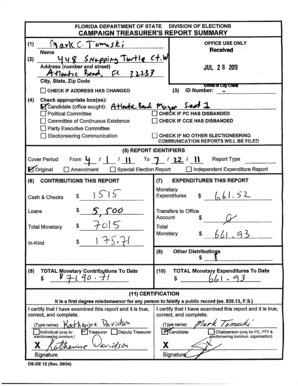 FLORIDA DEPARTMENT OF STATE DIVISION OF ELECTIONS
CAMPAIGN TREASURER'S REPORT SUMMARY
(1) Mark C. Tomaski
Name
(2) 448 Snapping Turtle Ct. W
Address (number and street)
Atlantic Beach, FL 32233
City, State, Zip Code
OFFICE USE ONLY
Received
JUL 28 2011
Office of City Clerk
CHECK IF ADDRESS HAS CHANGED
(3) ID Number:
(4) Check appropriate box(es):
Candidate (office sought): Atlantic Beach Mayor Seat 1
Political Committee
CHECK IF PC HAS DISBANDED
Committee of Continuous Existence
CHECK IF CCE HAS DISBANDED
Party Executive Committee
Electioneering Communication
CHECK IF NO OTHER ELECTIONEERING
COMMUNICATION REPORTS WILL BE FILED
(5) REPORT IDENTIFIERS
Cover Period: From 4 / 1 / 11 To 7 / 22 / 11 Report Type
Original Amendment Special Election Report Independent Expenditure Report
(6) CONTRIBUTIONS THIS REPORT
Cash & Checks $ 1515
Loans $ 5,500
Total Monetary $ 7015
In-Kind $ 175.71
(7) EXPENDITURES THIS REPORT
Monetary
Expenditures $ 661.52
Transfers to Office
Account $
Total
Monetary $ 661.93
(8) Other Distributions
$
(9) TOTAL Monetary Contributions To Date
$ 7190.71
(10) TOTAL Monetary Expenditures To Date
$ 661.93
(11) CERTIFICATION
It is a first degree misdemeanor for any person to falsify a public record (ss. 839.13, F.S.)
I certify that I have examined this report and it is true,
correct, and complete.
(Type name) Katherine Davidson
Individual (only for
electioneering commun.)
Treasurer
Deputy Treasurer
X Katherine Davidson
Signature
I certify that I have examined this report and it is true,
correct, and complete.
(Type name) Mark Tomaski
Candidate
Chairperson (only for PC, PTY &
electioneering commun. organization)
X
Signature
DS-DE 12 (Rev. 08/04)